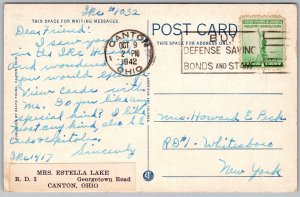 IRC #1032
THIS SPACE FOR WRITING MESSAGES
POST CARD
THIS SPACE FOR ADDRESS ONLY
Dear Friend:
I saw
in the IRC
and wondered
you would
View Cards with
me. Do you like any
special kind? I like
most any kind also
Capitols.
Sincerely
IRC 1917
CANTON
OCT 9
PM
1942
OHIO
BUY
DEFENSE SAVINGS
BONDS AND STAMPS
Mrs. Howard E. Peck
RD#1 - Whitesboro
New York
MRS. ESTELLA LAKE
R. D. 3 Georgetown Road
CANTON, OHIO